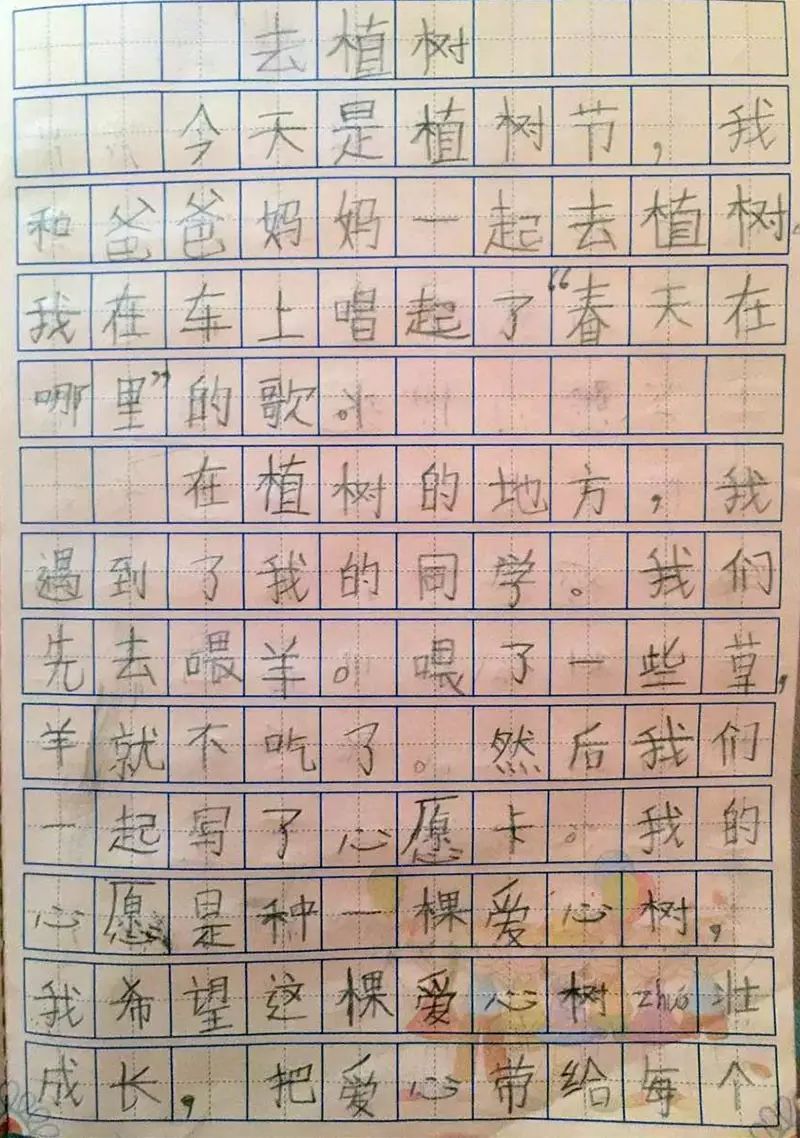 去植树
今天是植树节，我
和爸爸妈妈一起去植树。
我在车上唱起了“春天在
哪里”的歌。
在植树的地方，我
遇到了我的同学。我们
先去喂羊。喂了一些草，
羊就不吃了。然后我们
一起写了心愿卡。我的
心愿是种一棵爱心树，
我希望这棵爱心树zhuó壮
成长，把爱心带给每个